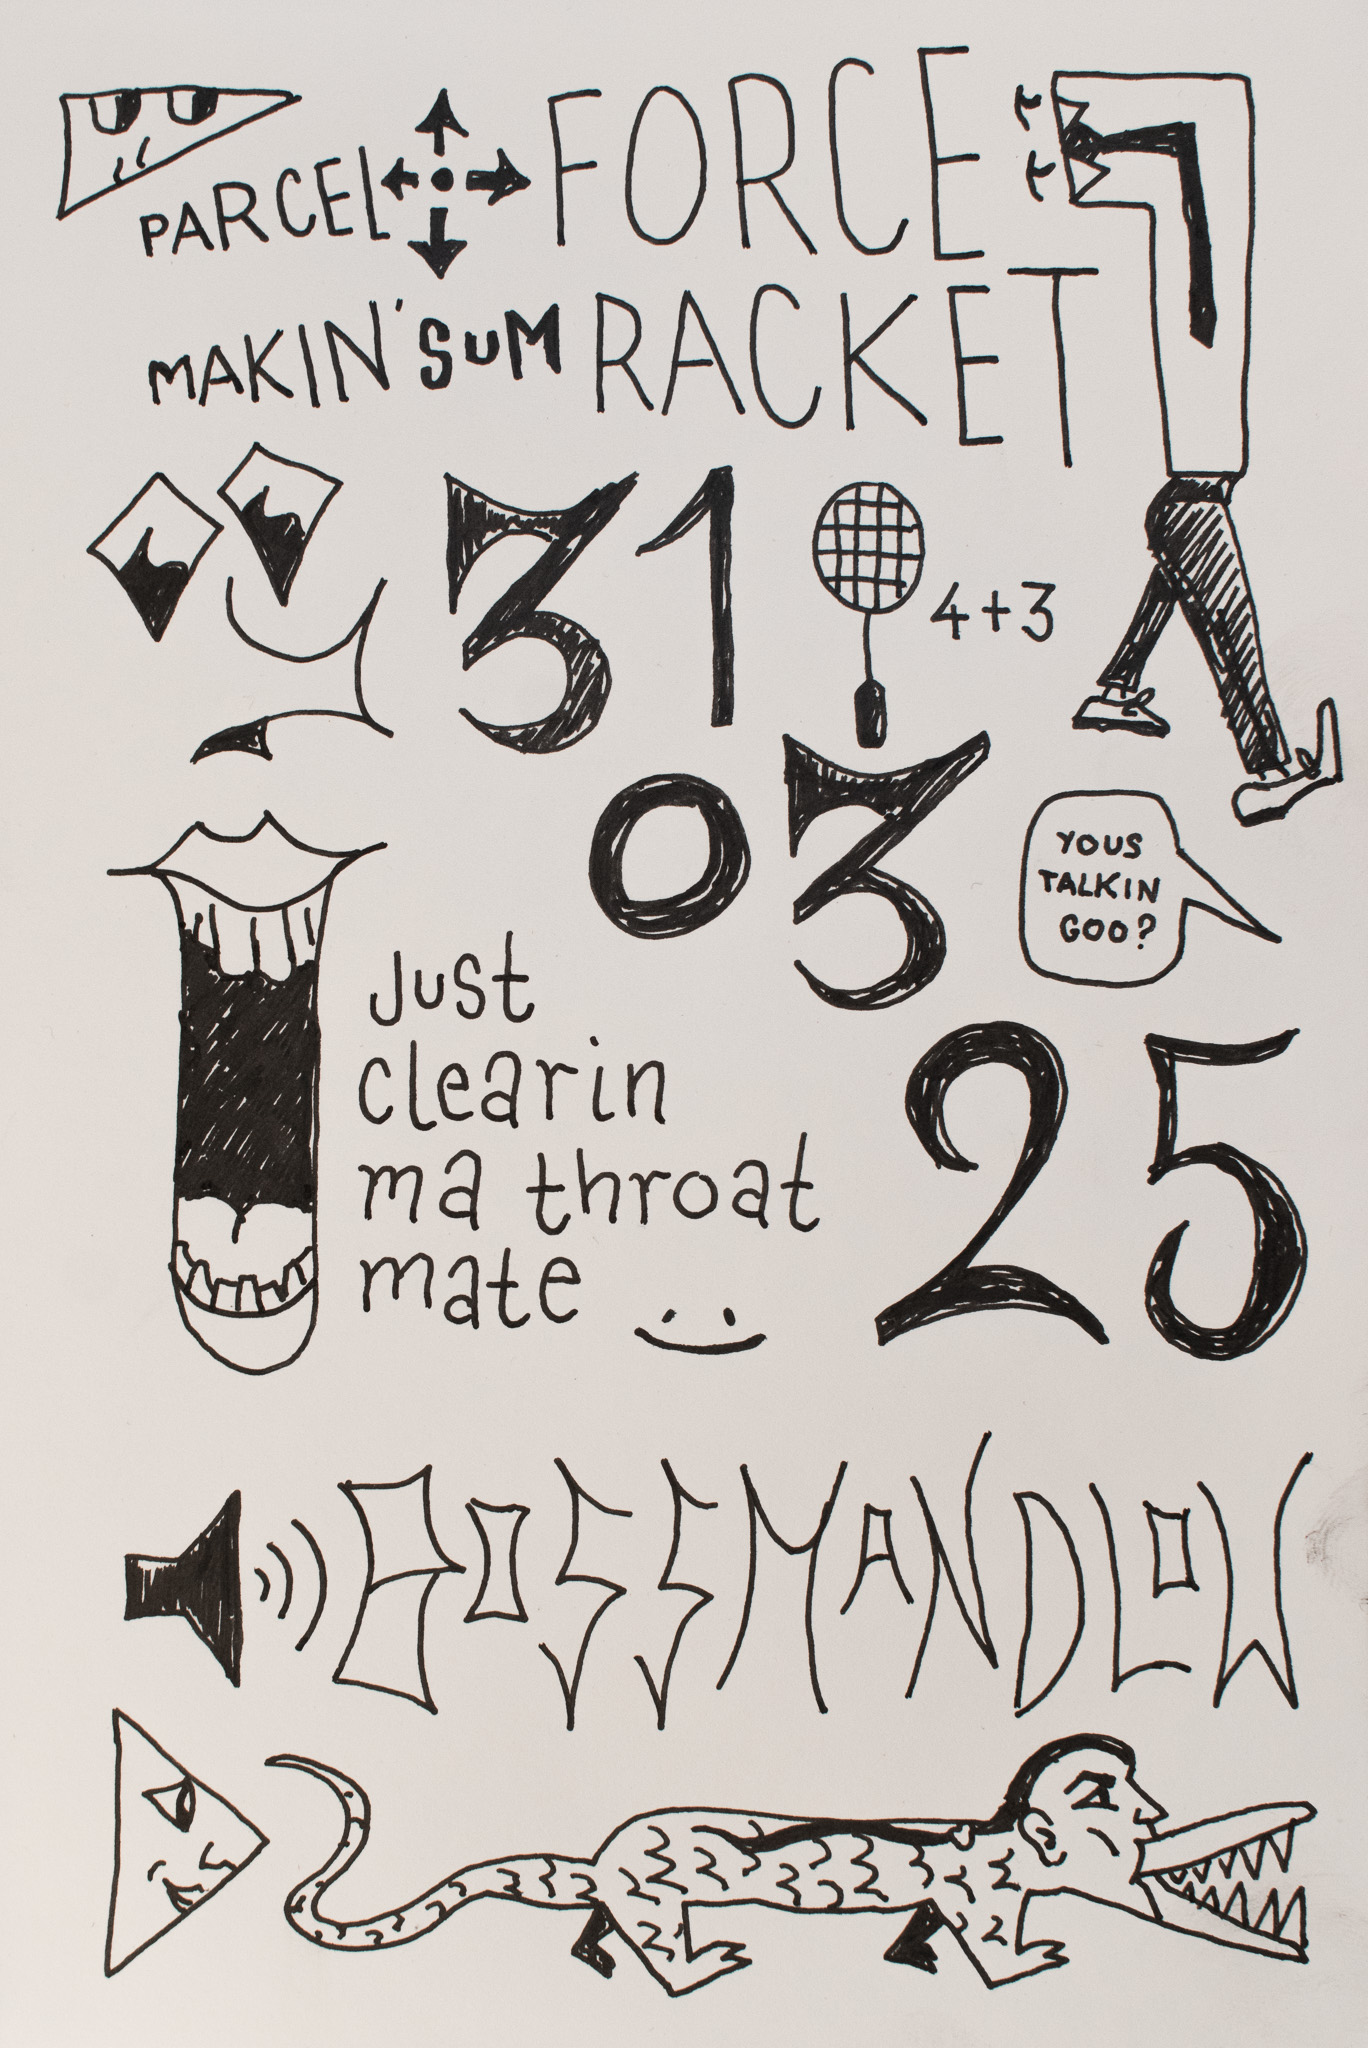 PARCEL FORCE
MAKIN' SUM RACKET
31
4+3
03
YOUS
TALKIN
GOO?
Just
clearin
ma throat
mate
25
BOSSMANDLOW